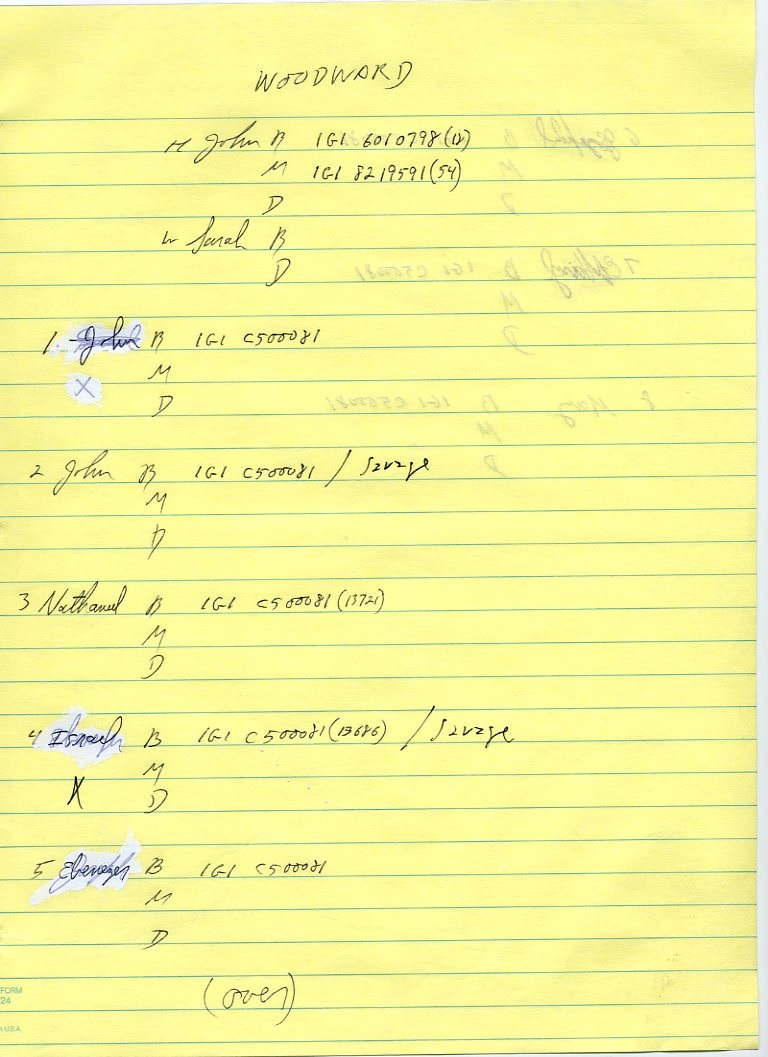 WOODWARD
H John B IGI 6010798 (12)
M IGI 8219591 (54)
D
W Sarah B
D
1. John B IGI C500081
X M
D
2 John B IGI C500081 / Savage
M
D
3 Nathaniel B IGI C500081 (13721)
M
D
4 Israel B IGI C500081 (13686) / Savage
M
X D
5 Ebenezer B IGI C500081
M
D
(over)
FORM
24
U.S.A.